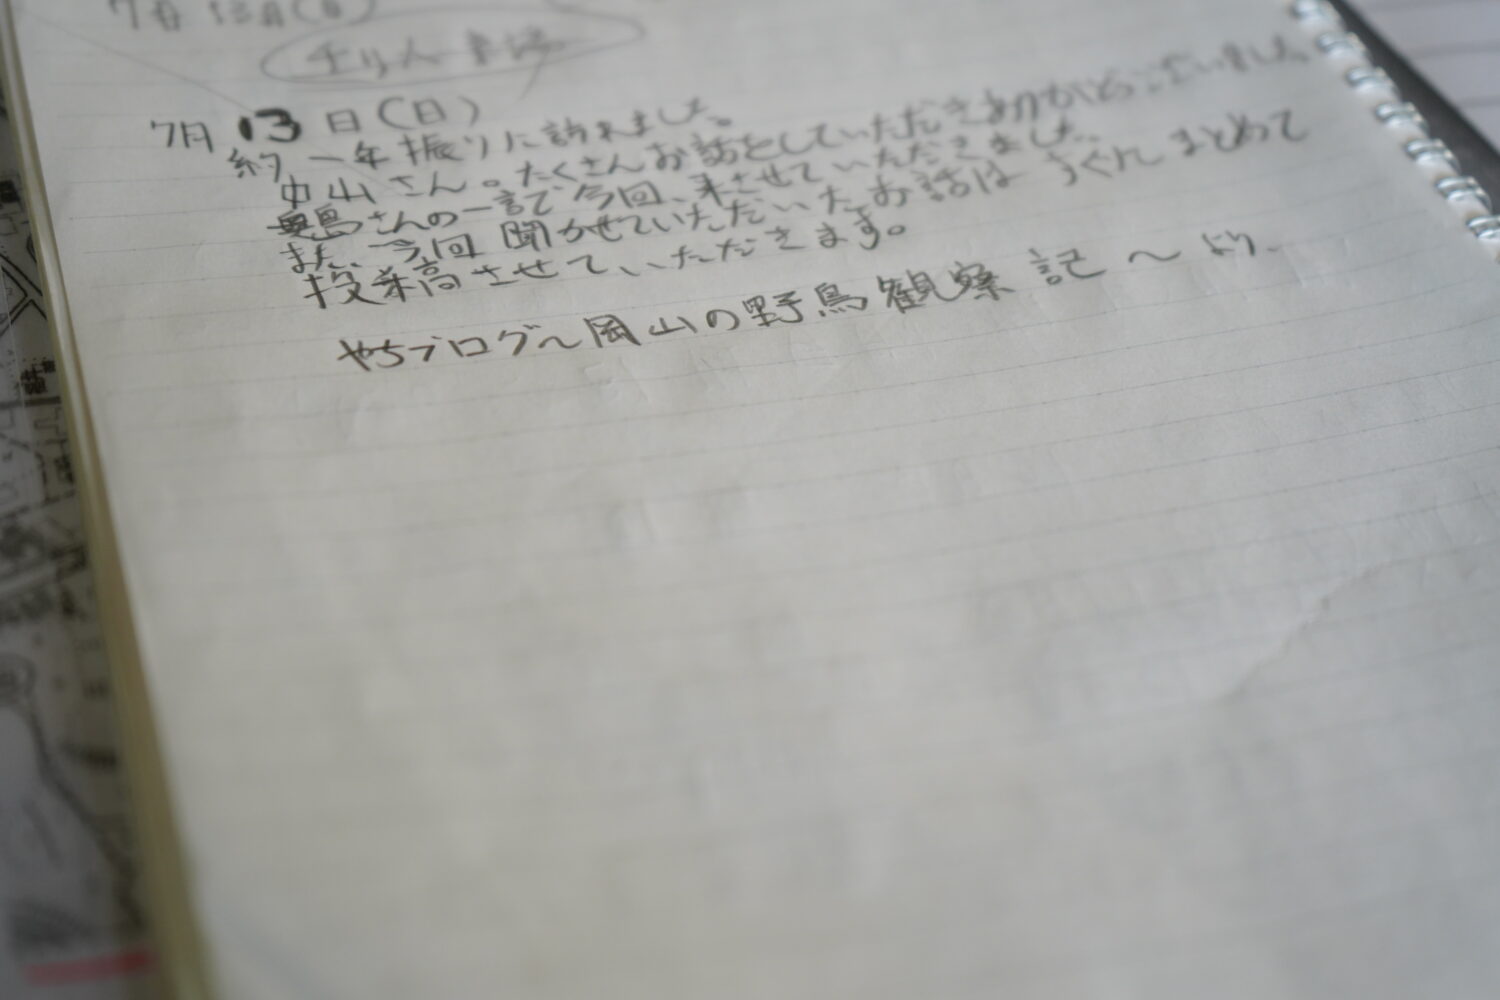 7月 13日(日)
7月 13日(日)
約一年振りに訪れました。
中山さん。たくさんお話をしていただきありがとうございました。
奥島さんの一言で今回、来させていただきました。
また、今回聞かせていただいたお話はうぐんまとめて
投稿させていただきます。
やちブログ～岡山の野鳥観察記～より、